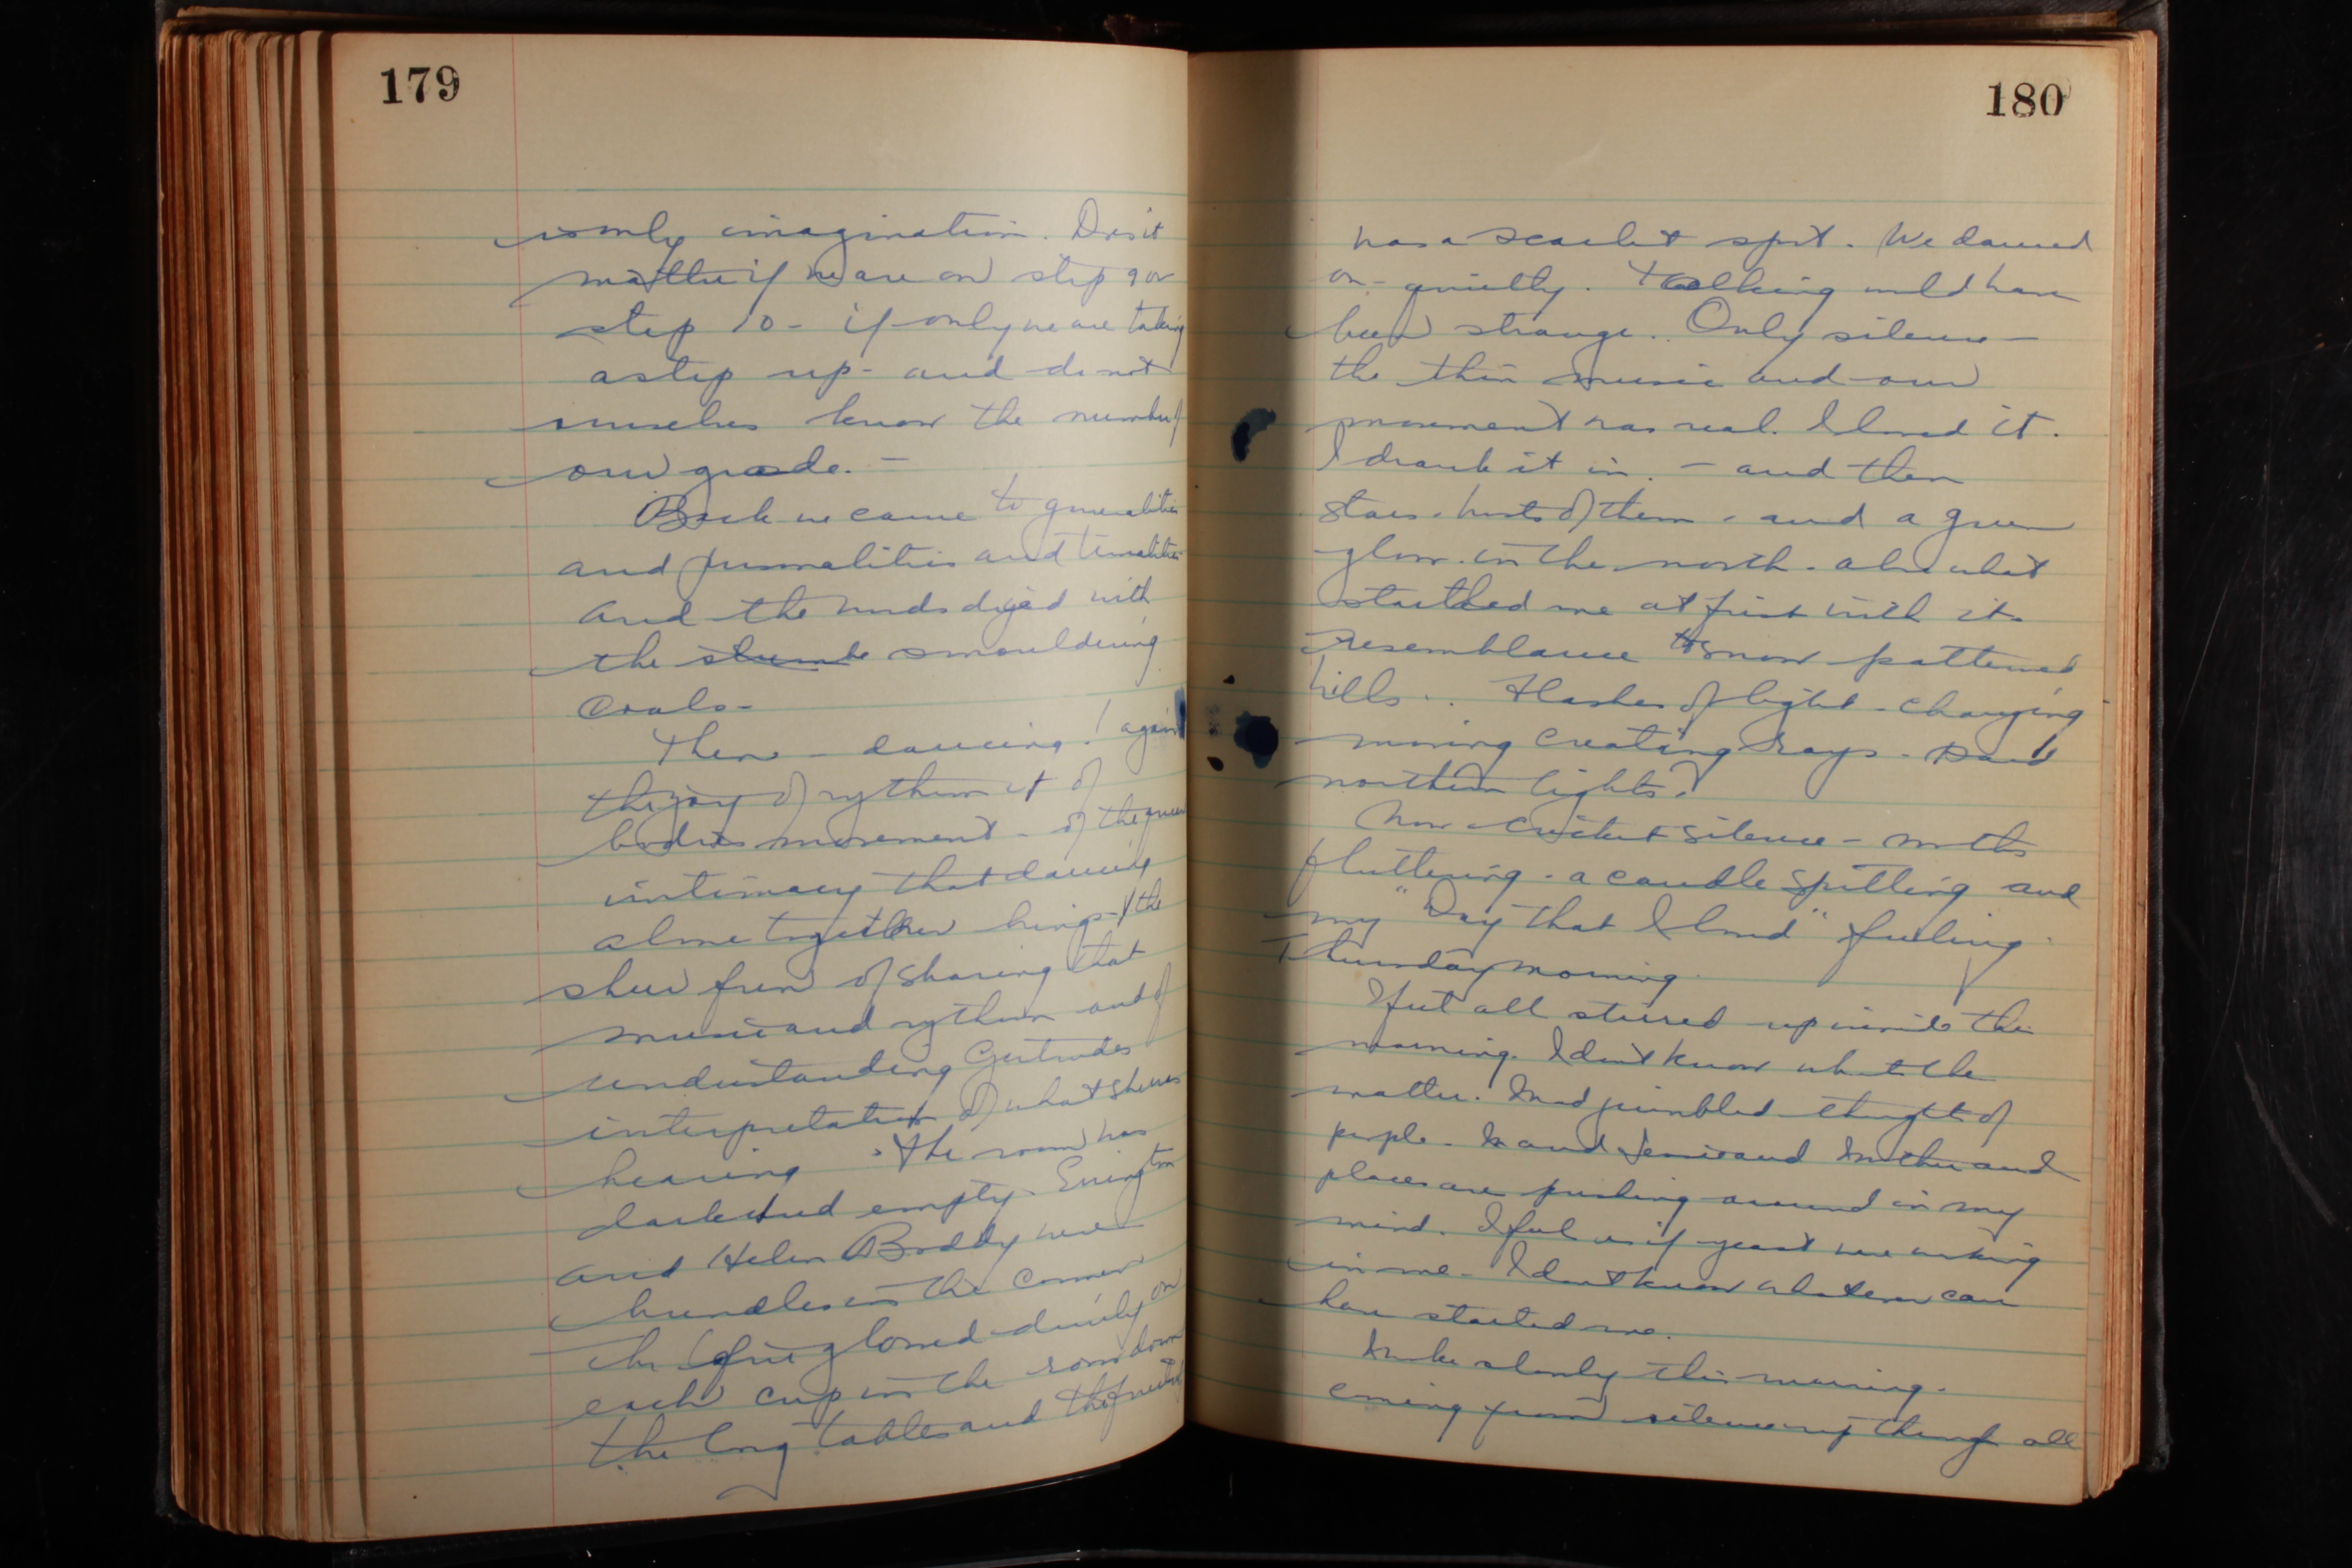 179
is only imagination. Does it
matter if we are on step 9 or
step 10 - if only we are taking
a step up - and do not
ourselves know the number of
our grade. -
Back we came to generalities
and personalities and
and the words died with
the slumbe smouldering
coals -
Then - dancing! again
the joy of rythum & of
bodies movement - of the queer
intimacy that dancing
alone together brings - & the
sheer fun of sharing that
music and rythum and of
understanding Gertrudes
interpretation of what she was
hearing. The room was
dark and empty. Errington
and Helen Boddy were
bundles in the corner
The fire glowed dimly on
each cup in the row down
the long tables and the
180
was a scarlet spot. We danced
on - quietly. Talking would have
been strange. Only silence -
the thin music and our
movement was real. I loved it.
I drank it in. - and then
stars - hosts of them - and a green
glow in the north - also what
startled me at first with its
resemblance to snow patterned
hills. Flashes of light - changing
moving creating rays - and
northern lights.
Now - cricket silence - moths
fluttering - a candle spitting and
my "Day that I loved" feeling
Thursday morning.
I feel all stirred up inside this
morning. I don't know what the
matter. Mad jumbled thoughts of
people - and Mother and
places are pushing around in my
mind. I feel as if yeast were working
in me - I don't know whatever can
have started me.
I woke slowly this morning -
coming from silence up through all